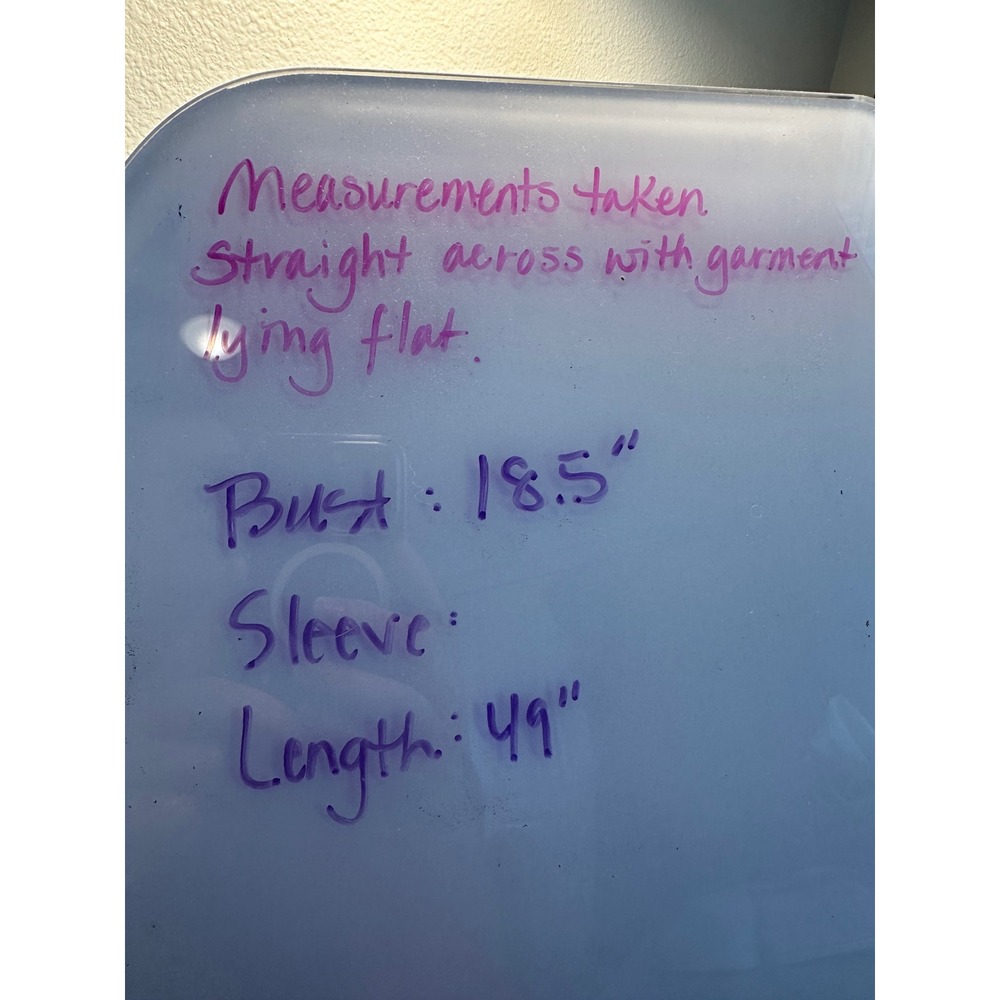 Measurements taken
straight across with garment
lying flat.
Bust: 18.5"
Sleeve:
Length: 49"